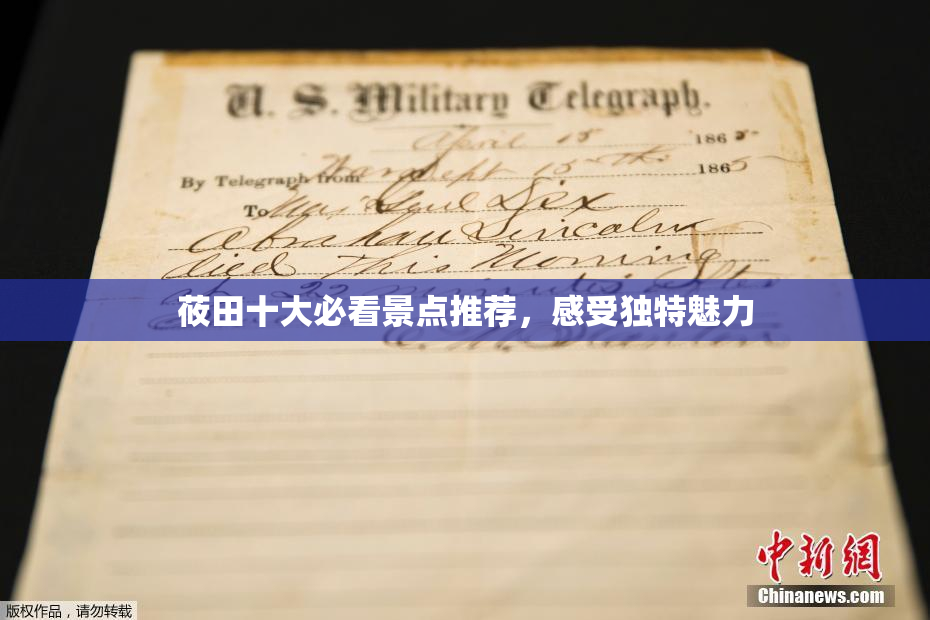 U. S. Military Telegraph.
April 15 1865
By Telegraph from War Dept 15th 1865
To Maj Genl Dix
Abraham Lincoln
died This Morning
at 22 minutes after
莜田十大必看景点推荐，感受独特魅力
E. M. Stanton
中新网
Chinanews.com
版权作品，请勿转载